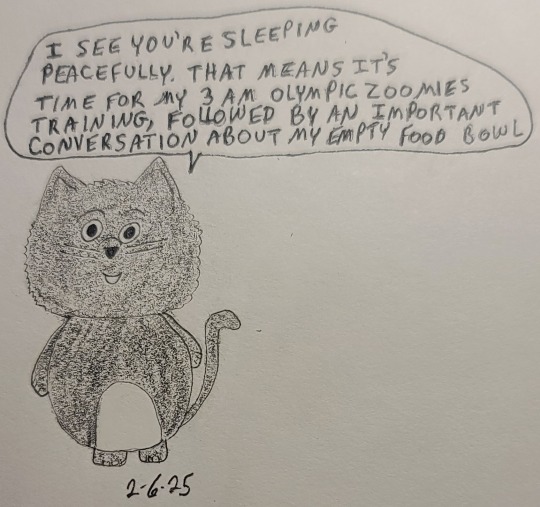 I SEE YOU'RE SLEEPING
PEACEFULLY. THAT MEANS IT'S
TIME FOR MY 3 AM OLYMPIC ZOOMIES
TRAINING, FOLLOWED BY AN IMPORTANT
CONVERSATION ABOUT MY EMPTY FOOD BOWL
2-6-25